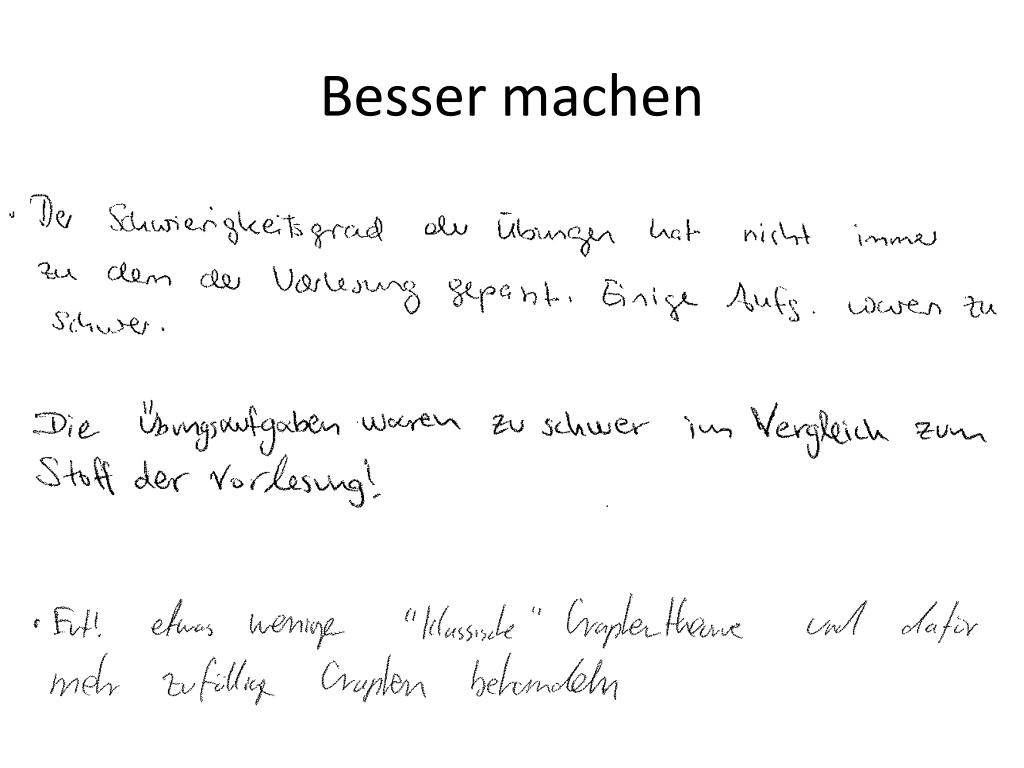 Besser machen
• Der Schwierigkeitsgrad der Übungen hat nicht immer
zu dem der Vorlesung gepasst. Einige Aufg. waren zu
schwer.
Die Übungsaufgaben waren zu schwer im Vergleich zum
Stoff der Vorlesung!
• Evtl. etwas weniger "klassische" Graphentheorie und dafür
mehr zufällige Graphen behandeln